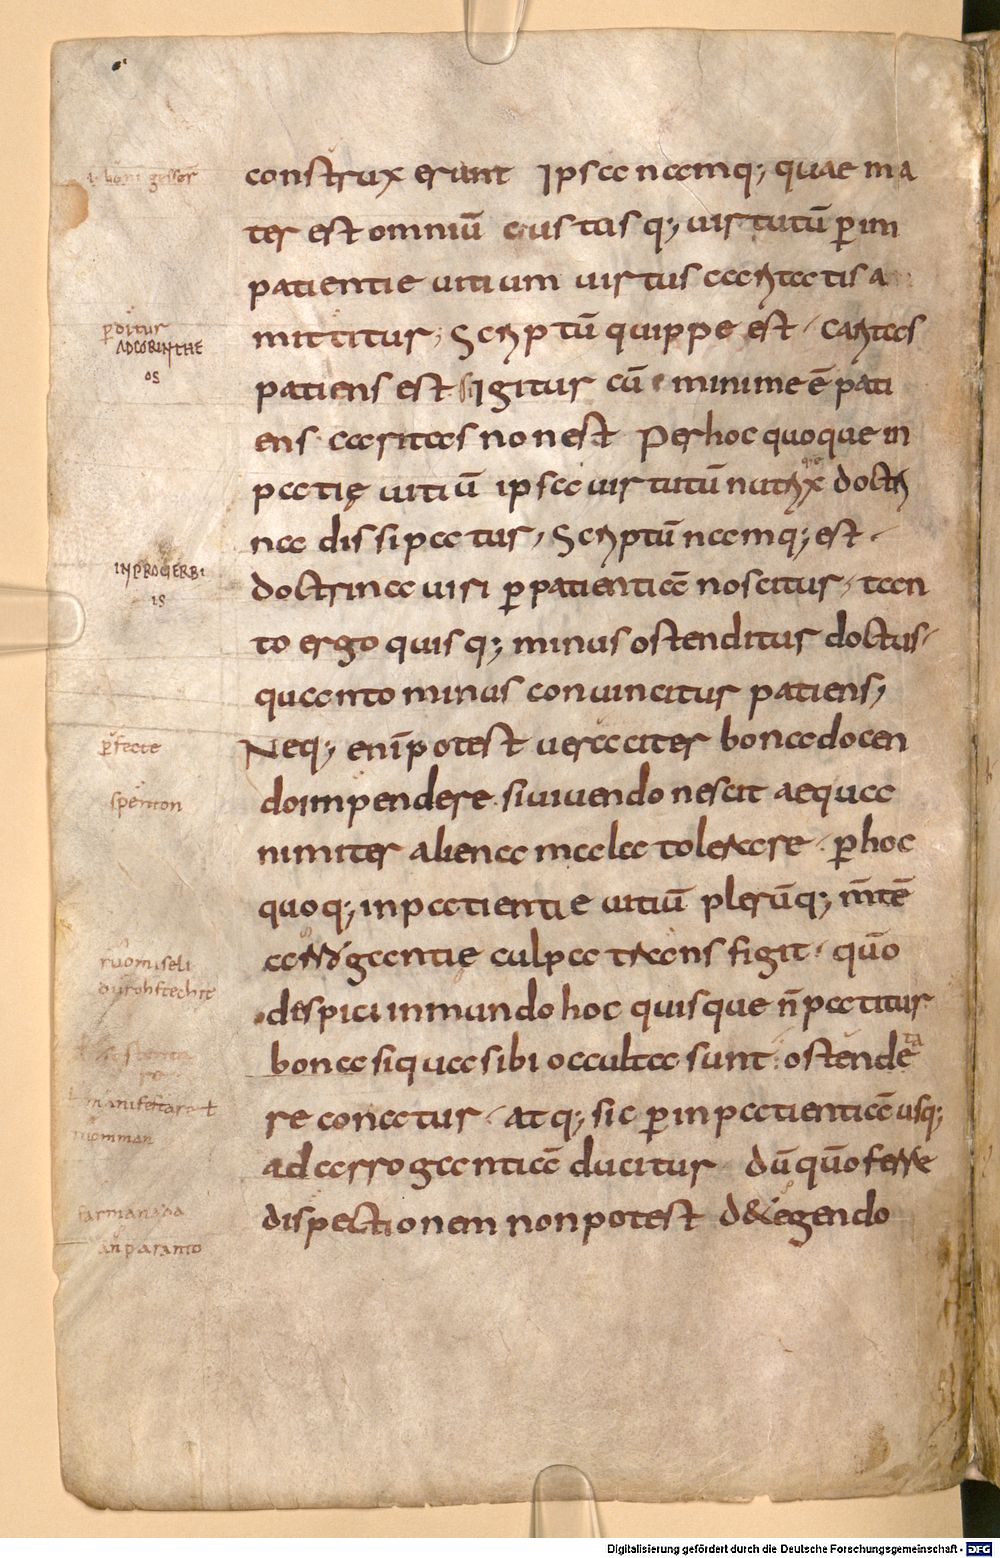 construxerant Ipsa namq; quae ma
ter est omniũ custusq; uirtutũ p̱ im
patientie uitium uirtus caritatis a
mittitur; Scriptũ quippe est · caritas
patiens est Igitur cũ minime ẽ pati
ens caritas non est Per hoc quoque in
patię uitiũ ipsa uirtutũ nutrix doctri
na dissipatur, Scriptũ namq; est ·
doctrina uiri p̱ patientiã noscitur · tan
to ergo quisq; minus ostenditur doctus ·
quanto minus conuincitur patiens;
Neq; enĩ potest ueraciter bona docen
do impendere · si uiuendo nescit aequa
nimiter aliena mala tolerare · p̱ hoc
quoq; inpatientie uitiũ plerũq; m̃tẽ
arrogantię culpa transfigit · quõ
despici in mundo hoc quisque ñ patitur
bona si qua sibi occulta sunt · ostende
re conatur · atq; sic p̱ inpatientiã usq;
ad arrogantiã ducitur dũ quõ ferre
dispectionem non potest detegendo
ta
i· boni gesser̃
p̱ditur
AD CORINTHE
OS
IN PROUERBI
IS
p̱fecte
spenton
ruomiseli
durohstechit
manifestara
ruomman
farmanada
anparanto
Digitalisierung gefördert durch die Deutsche Forschungsgemeinschaft - DFG